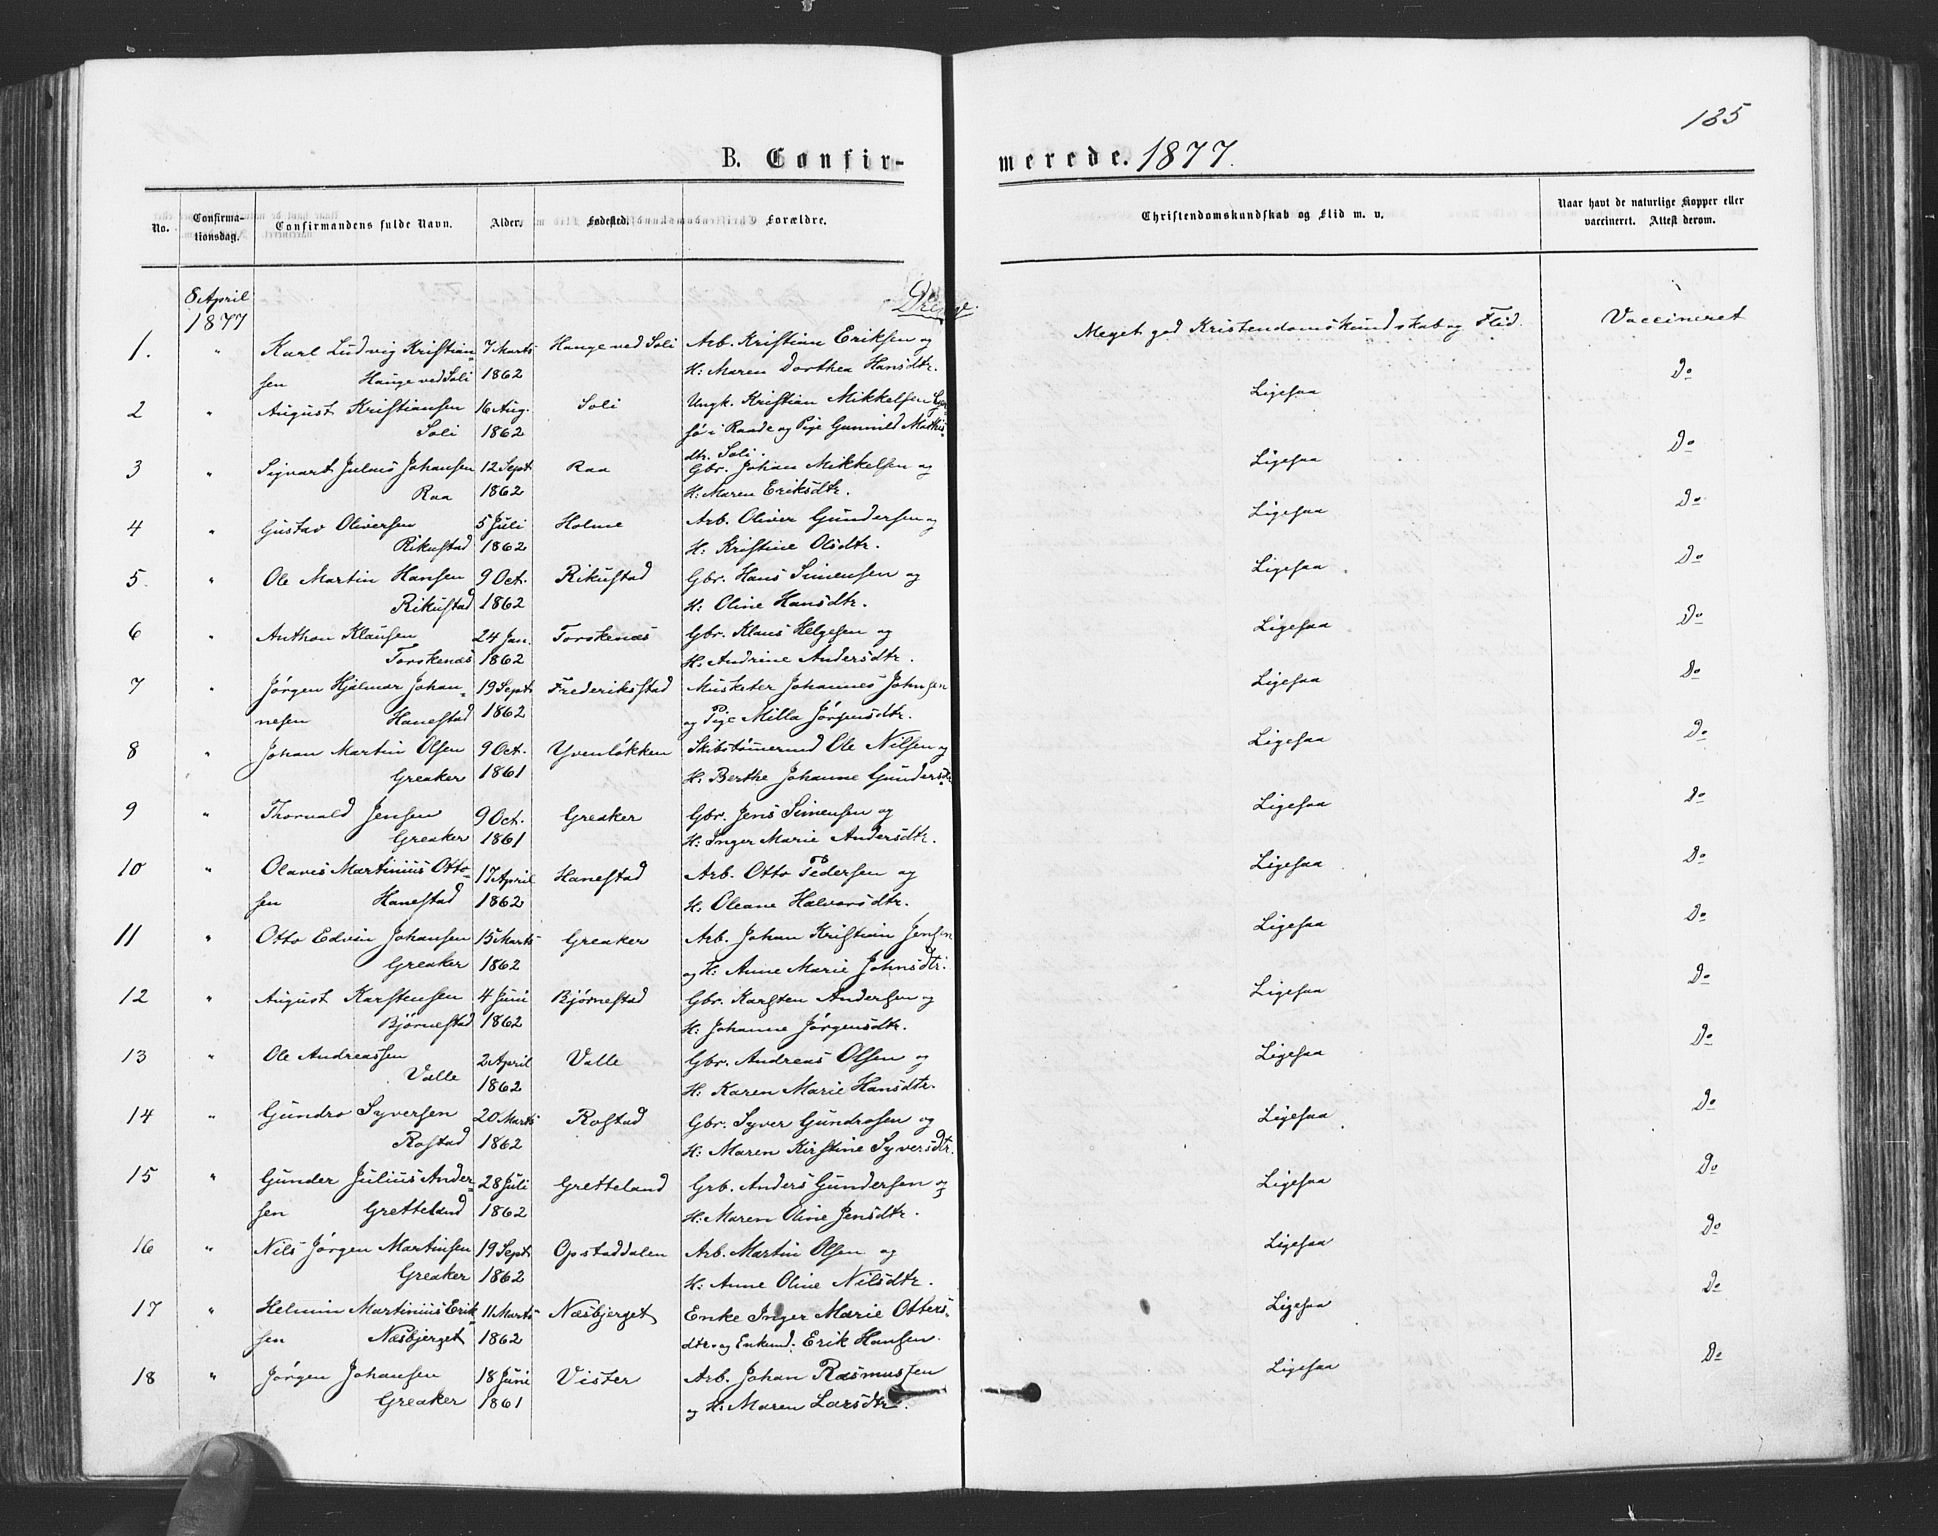 185
B. Confir- merede. 1877.
No. Confirma-tionsdag. Confirmandens fulde Navn. Alder. Fødested. Forældre. Christendomskundskab og Flid m. v. Naar havt de naturlige Kopper eller vaccineret. Attest derom.
8 April
1877
1. " Karl Ludvig Kristian= 7 Marts Hauge ved Soli Arb. Kristian Eriksen og Meget god Kristendomskundskab og Flid. Vaccineret
sen Hauge ved Soli 1862 H: Maren Dorthea Hansdtr.
2 " August Kristiansen 16 Aug. Soli Ungk. Kristian Mikkelsen Ligesaa Do
Soli 1862 i Raade og Pige Gunnild Mathis=
dtr. Soli.
3 " Sigvart Julius Johansen 12 Sept. Raa Gbr. Johan Mikkelsen og Ligesaa Do
Raa 1862 H: Maren Eriksdtr.
4 " Gustav Oliversen 5 Juli Holme Arb. Oliver Gundersen og Ligesaa Do
Rikustad 1862 H: Kristine Olsdtr.
5. " Ole Martin Hansen 9 Oct. Rikustad Gbr. Hans Simensen og Ligesaa Do
Rikustad 1862 H: Oline Hansdtr.
6 " Anthon Klausen 24 Jan. Torskenæs Gbr. Klaus Helgesen og Ligesaa Do
Torskenæs 1862 H: Andrine Andersdtr.
7 " Jørgen Hjalmar Johan= 19 Sept. Frederiksstad Musketer Johannes Johnsen Ligesaa Do
nesen Hanestad 1862 og Pige Milla Jørgensdtr.
8 " Johan Martin Olsen 9 Oct. Yvenløkken Skibstømermd Ole Nilsen og Ligesaa Do
Greaker 1861 H: Berthe Johanne Gundersdtr
9 " Thorvald Jensen 9 Oct. Greaker Gbr. Jens Simensen og Ligesaa Do
Greaker 1861 H: Inger Marie Andersdtr.
10 " Olaves Martinius Otto= 17 April Hanestad Arb. Otto Pedersen og Ligesaa Do
sen Hanestad 1862 H: Oleane Halvorsdtr.
11 " Otto Edvin Johansen 15 Marts Greaker Arb. Johan Kristian Jensen Ligesaa Do
Greaker 1862 og H: Anne Marie Johnsdtr.
12 " August Karstensen 4 Juni Bjørnestad Gbr. Karsten Andersen og Ligesaa Do
Bjørnestad 1862 H: Johanne Jørgensdtr.
13 " Ole Andreassen 2 April Valle Gbr. Andreas Olsen og Ligesaa Do
Valle 1862 H: Karen Marie Hansdtr.
14 " Gundro Syversen 20 Marts Rostad Gbr. Syver Gundrosen og Ligesaa Do
Rostad 1862 H: Maren Kirstine Syversdtr.
15 " Gunder Julius Ander= 28 Juli Gretteland Grb. Anders Gundersen og Ligesaa Do
sen Gretteland 1862 H: Maren Oline Jensdtr.
16 " Nils Jørgen Martinsen 19 Sept. Opstaddalen Arb. Martin Olsen og Ligesaa Do
Greaker 1862 H: Anne Oline Nilsdtr.
17 " Helmin Martinius Erik= 11 Marts Næsbjerget Enke Inger Marie Otters= Ligesaa Do
sen Næsbjerget 1862 dtr. og Enkemd. Erik Hansen.
18 " Jørgen Johansen 18 Juni Vister Arb. Johan Rasmussen Ligesaa Do
Greaker 1861 og H: Maren Larsdtr.